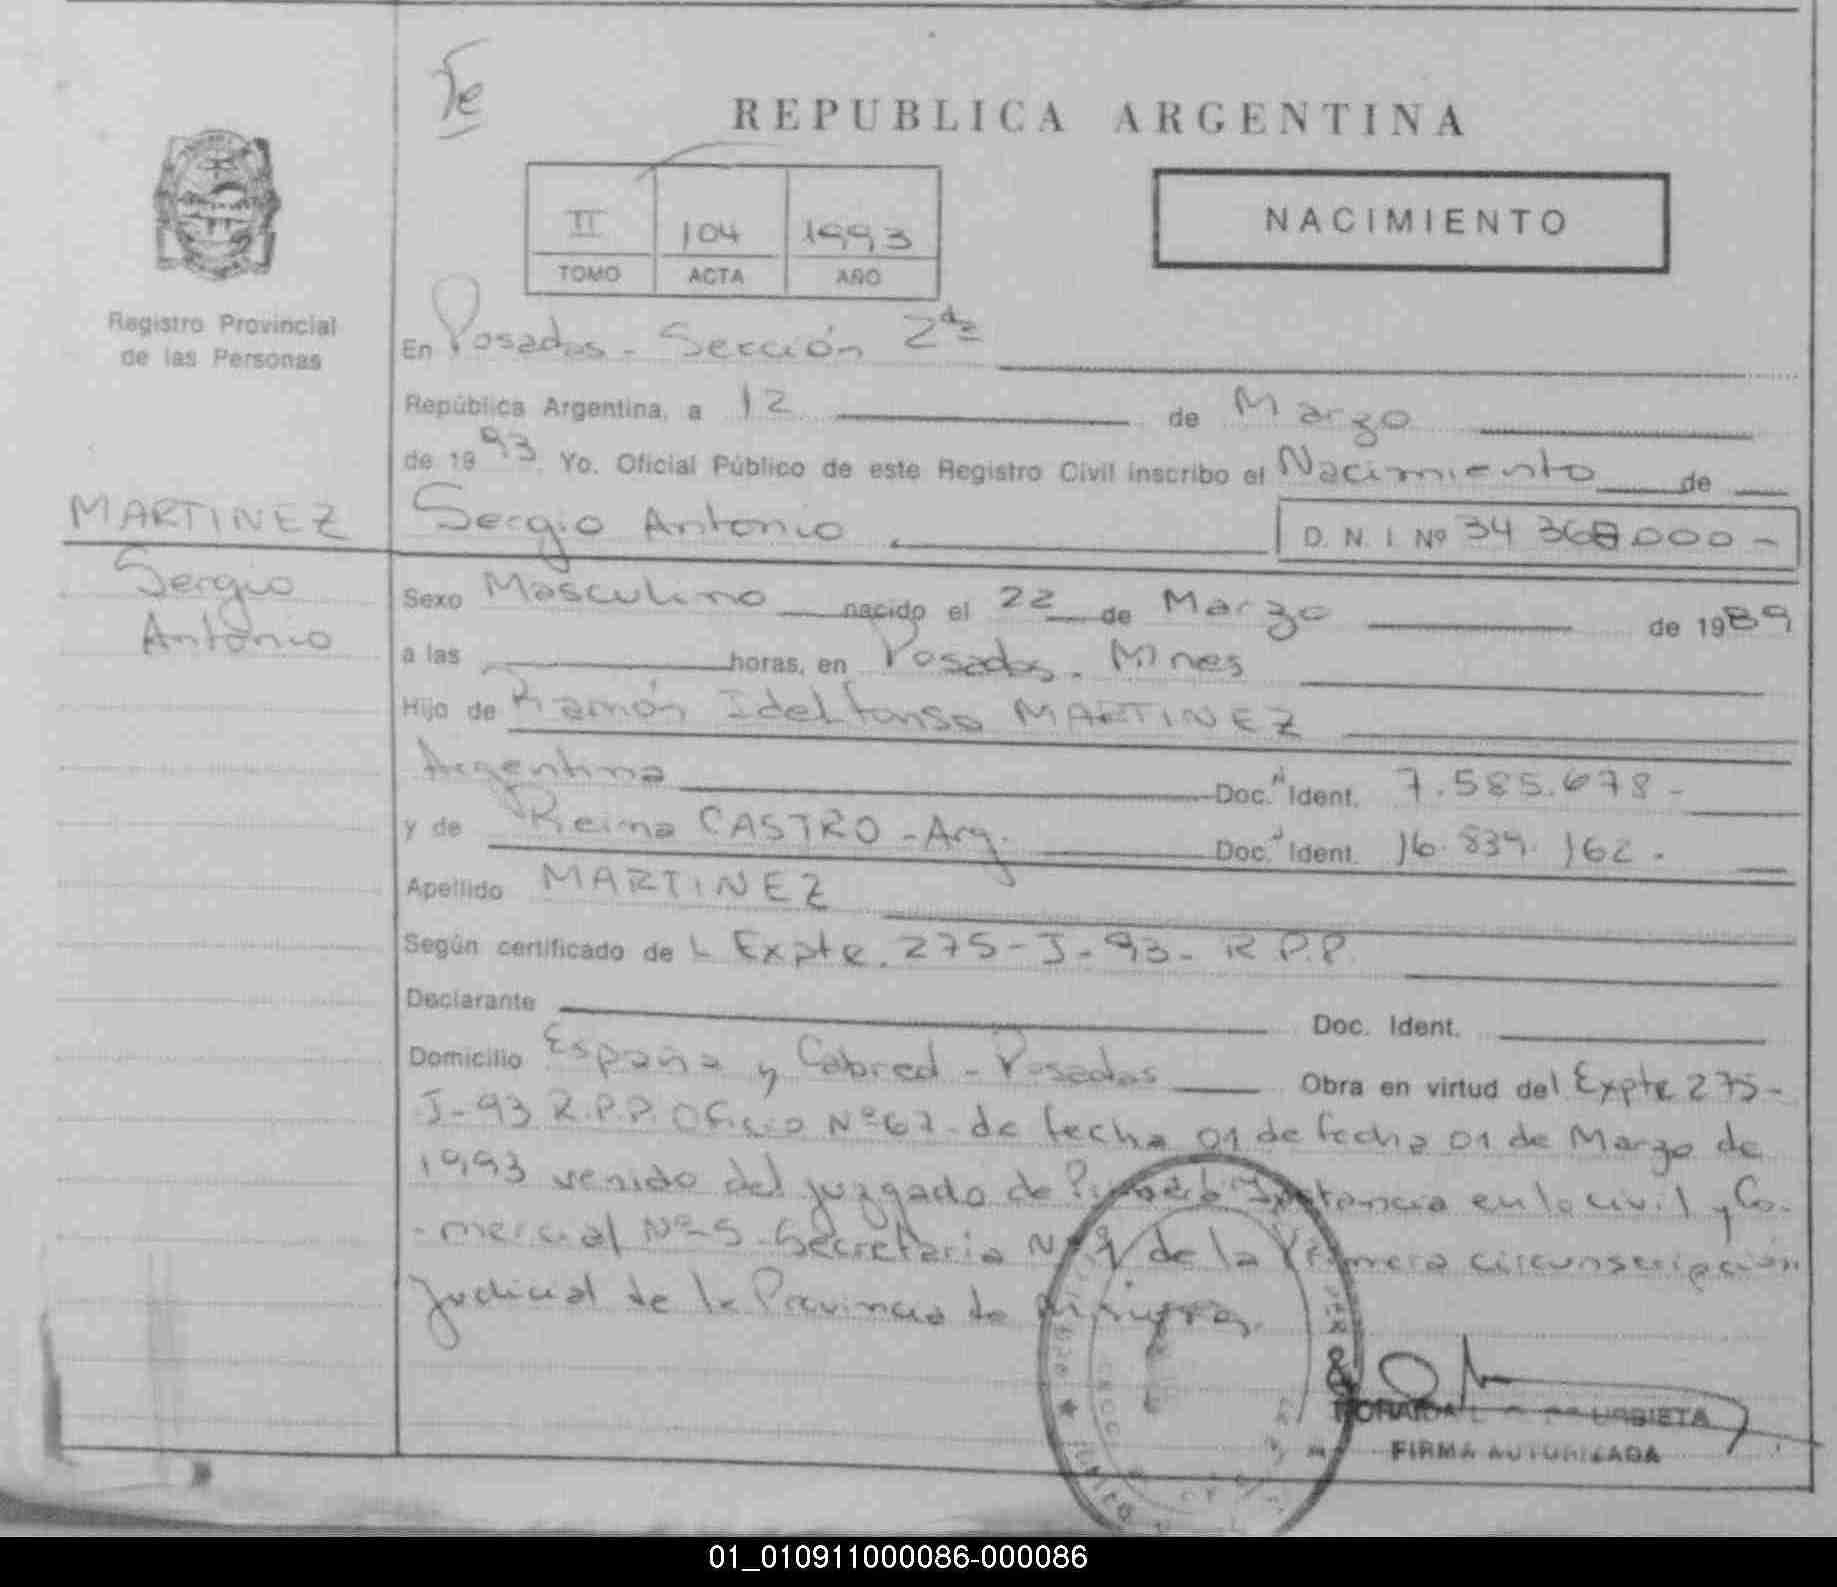 Te
REPUBLICA ARGENTINA
II 104 1993
TOMO ACTA AÑO
NACIMIENTO
Registro Provincial
de las Personas
En Posadas - Sección 2da
República Argentina, a 12 de Marzo
de 1993. Yo. Oficial Público de este Registro Civil inscribo el Nacimiento de
MARTINEZ
Sergio
Antonio
Sergio Antonio. D. N. I. Nº 34 368.000-
Sexo Masculino nacido el 22 de Marzo de 1989
a las horas, en Posadas. Mnes
Hijo de Ramón Idelfonso MARTINEZ
Argentina Doc. Ident. 7.585.678-
y de Reina CASTRO - Arg. Doc. Ident. 16.839.162.
Apellido MARTINEZ
Según certificado de L Expte. 275-J-93- R.P.P.
Declarante Doc. Ident.
Domicilio España y Cabred - Posadas Obra en virtud del Expte 275-
J-93 R.P.P. Oficio Nº 62 de fecha 01 de fecha 01 de Marzo de
1993 venido del juzgado de Primera Instancia en lo civil y Co-
-mercial Nº 5 Secretaria Nº 9 de la Primera circunscripción
Judicial de la Provincia de Misiones.
URBIETA
FIRMA AUTORIZADA
01_010911000086-000086